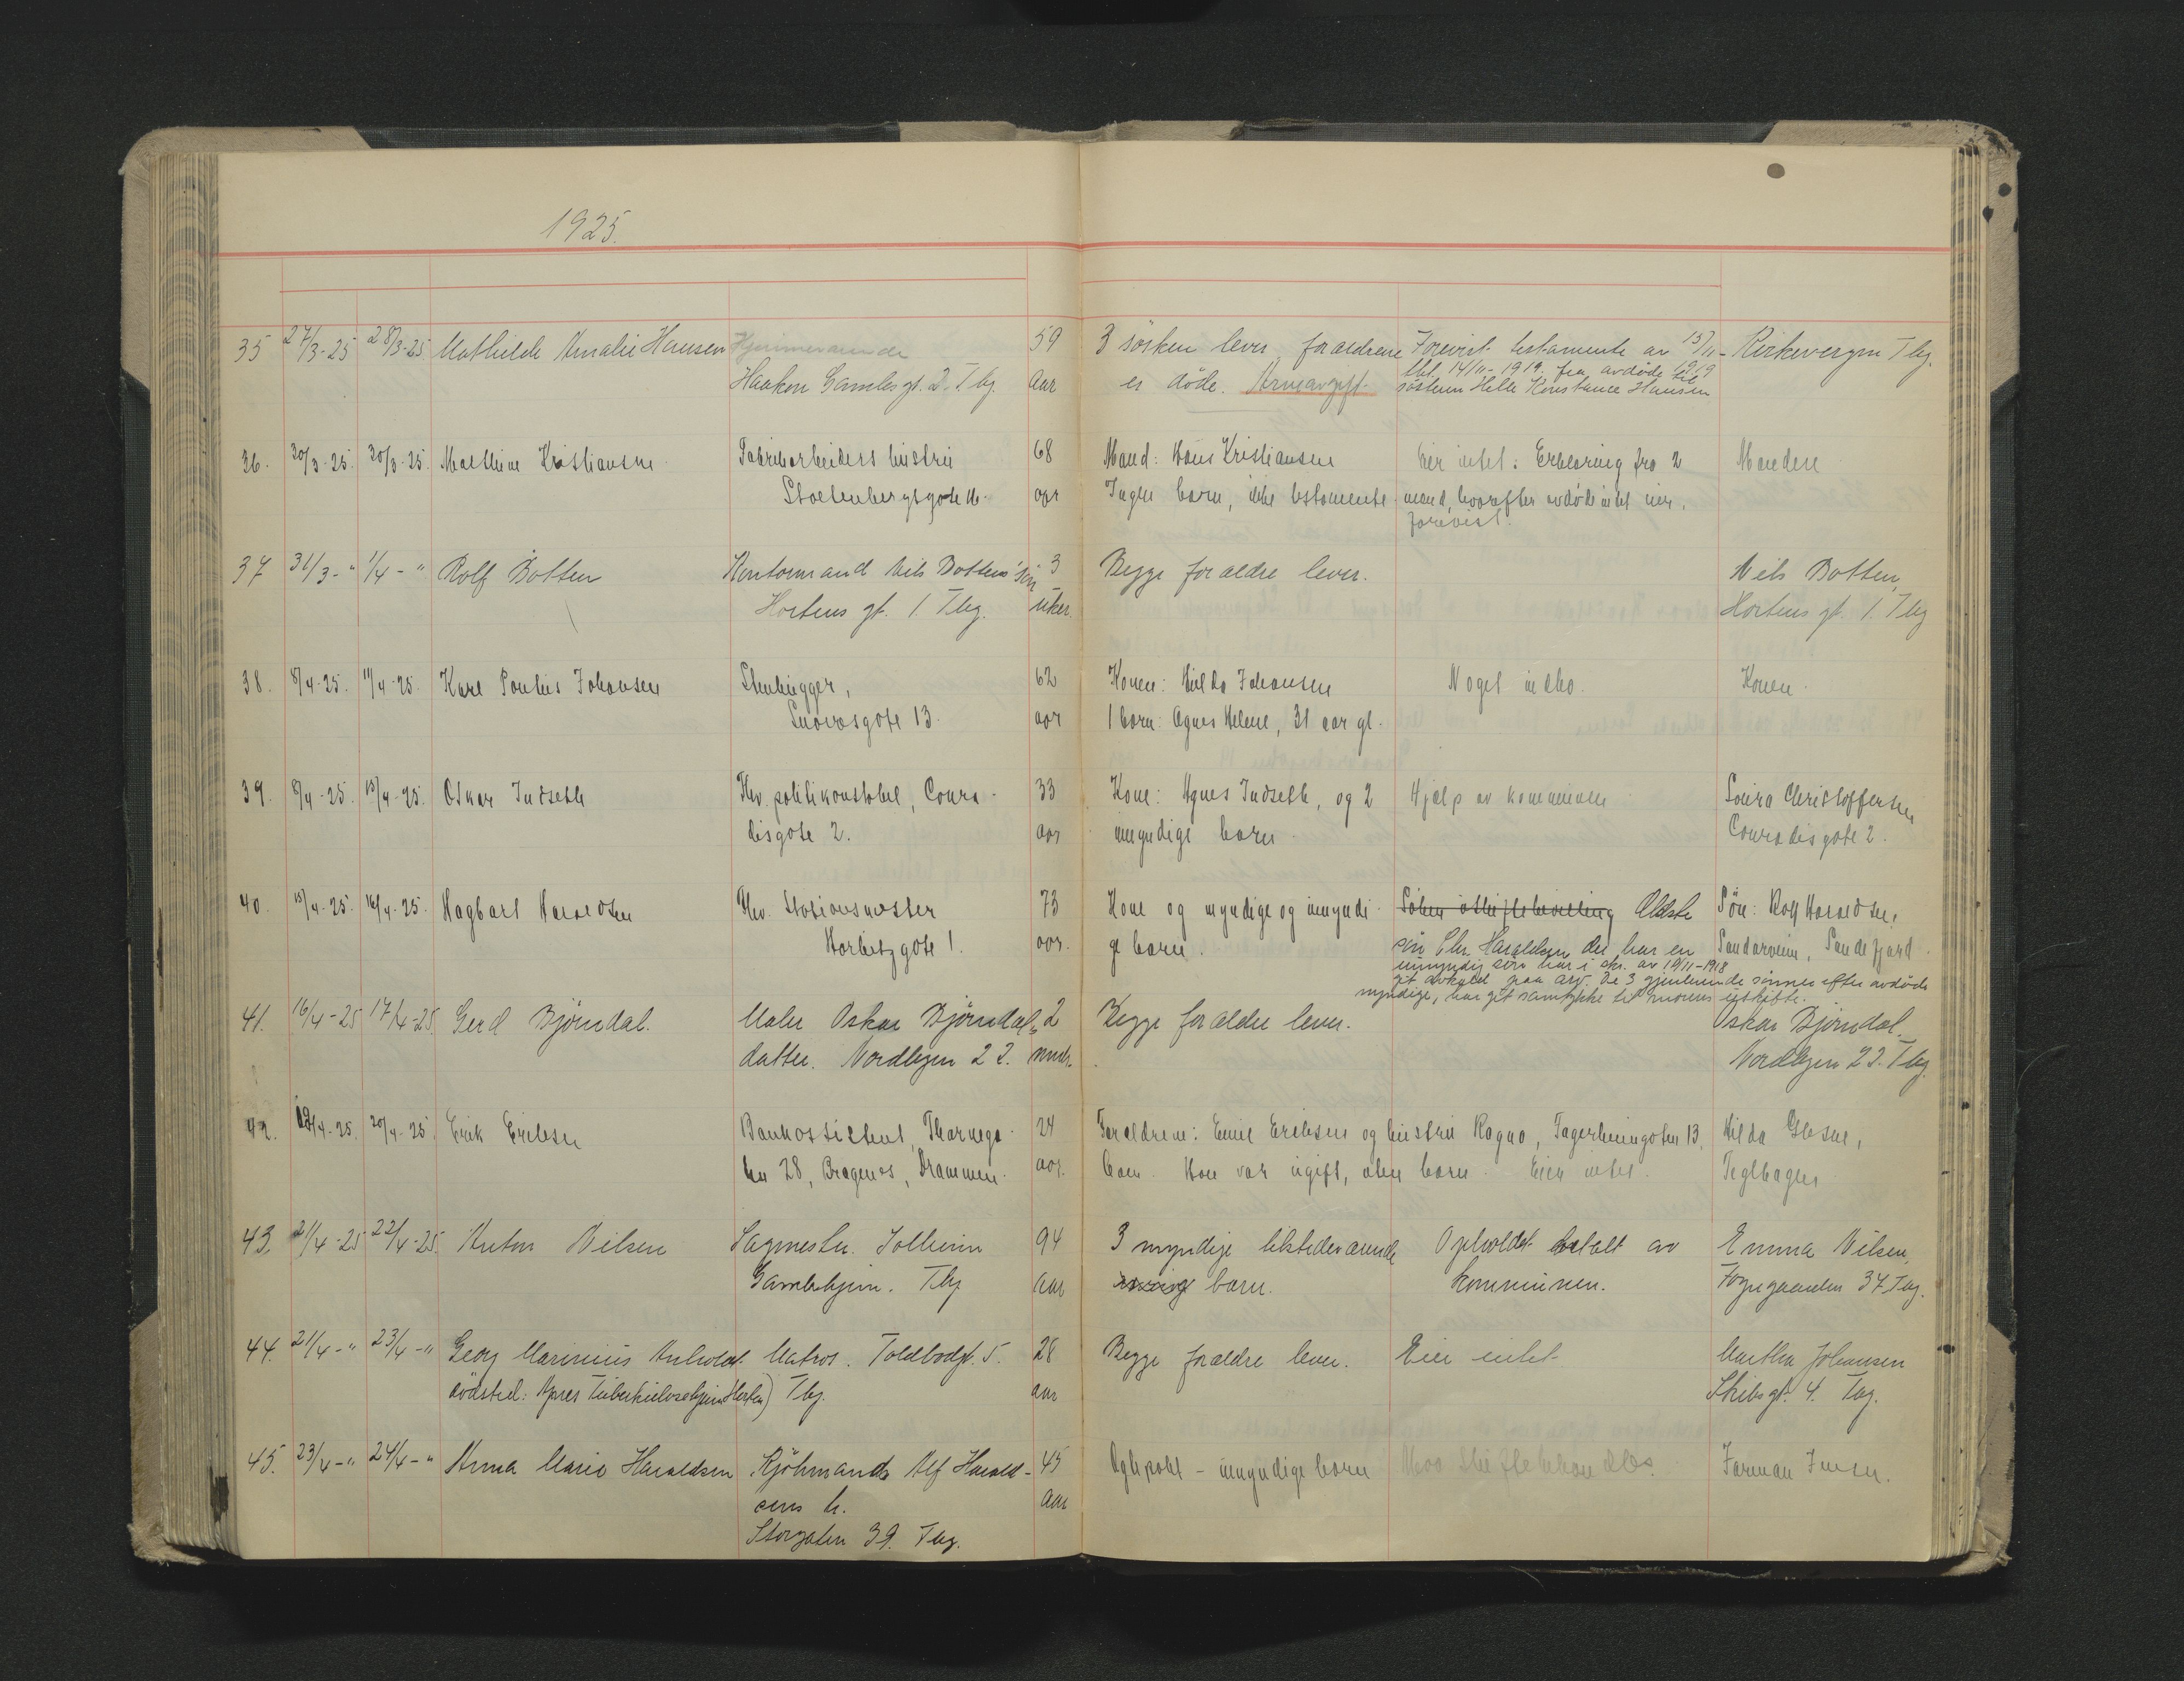 1925.
35 27/3-25 28/3-25 Mathilde Amalie Hansen Hjemmeværende 59 3 søsken lever, forældrene Forevist testamente av 13/11- Kirkevergen Tbg.
Haakon Gamles gt. 2. Tbg. Aar er døde. Arveavgift 1919
tbl. 14/11-1919. fra avdøde til
søsteren Helle Konstance Hansen
36. 30/3-25. 30/3-25. Mathine Kristiansen Fabrikarbeiders hustru 68 Mand: Hans Kristiansen Eier intet. Erklæring fra 2 Manden
Stoltenbergsgate aar Ingen barn, ikke testamente mand, hvorefter avdøde intet eier,
forevist.
37 31/3-" 1/4-" Rolf Botten Kontormand Nils Bottens søn 3 Begge forældre lever. Nils Botten,
Hortens gt. 1. Tbg. uker. Hortens gt. 1. Tbg
38. 8/4-25. 11/4-25. Karl Paulus Johansen Stenhugger, 62 Konen: Hilda Johansen Noget indbo. Konen.
Snorresgate 13. aar 1 barn: Agnes Helene, 31 aar gl.
39. 8/4-25. 15/4-25. Oskar Indseth Fhv. politikonstabel, Conra- 33 Kone: Agnes Indseth, og 2 Hjælp av kommunen Laura Christoffersen
disgate 2. aar umyndige barn. Conradisgate 2.
40. 15/4-25. 16/4-25. Hagbart Haraldsen Fhv. stasionsmester 73 Kone og myndige og umyndi- Søker uskiftebevilling Ældste Søn: Rolf Haraldsen,
gate 1. aar. ge barn. søn Chr. Haraldsen der har en Sandarveien, Sandefjord.
umyndig søn har i skr. av 19/11-1918
git avkald paa arv. De 3 gjenlevende sønner efter avdøde
myndige, har git samtykke til morens uskifte.
41. 16/4-25 17/4-25. Gerd Bjørndal. Maler Oskar Bjørndals 2 Begge forældre lever. Oskar Bjørndal
datter. Nordbyen 22. mndr. Nordbyen 22. Tbg.
42. 19/4-25. 20/4-25. Erik Eriksen Bankassistent, Thornega- 24 Forældrene: Emil Eriksen og hustru Ragna, Fagerheimgaten 13, Hilda
ten 28, Bragenes, Drammen. aar. Han var ugift, uten barn. Eier intet. Teglhagen
43. 21/4-25 22/4-25. Anton Nilsen Sagmester. Solheim 94 3 myndige tilstedeværende Opholdet betalt av Emma Nilsen,
Gamlehjem. Tbg. Aar barn. kommunen. Fogegaarden 37 Tbg.
44. 21/4-" 23/4-" Georg Marinius Anholdt. Matros. Toldbodgt. 5. 28 Begge forældre lever. Eier intet Martha Johansen
dødsted: Apnes Tuberkulosehjem Horten) Tbg. aar Skibsgt. 4. Tbg.
45. 23/4-" 24/4-" Anna Marie Haraldsen Sjømand Alf Harald- 45 Egtepakt - umyndige barn Maa skiftebehandles. Formann Jensen.
sens h. Aar
Storgaten 39. Tbg.